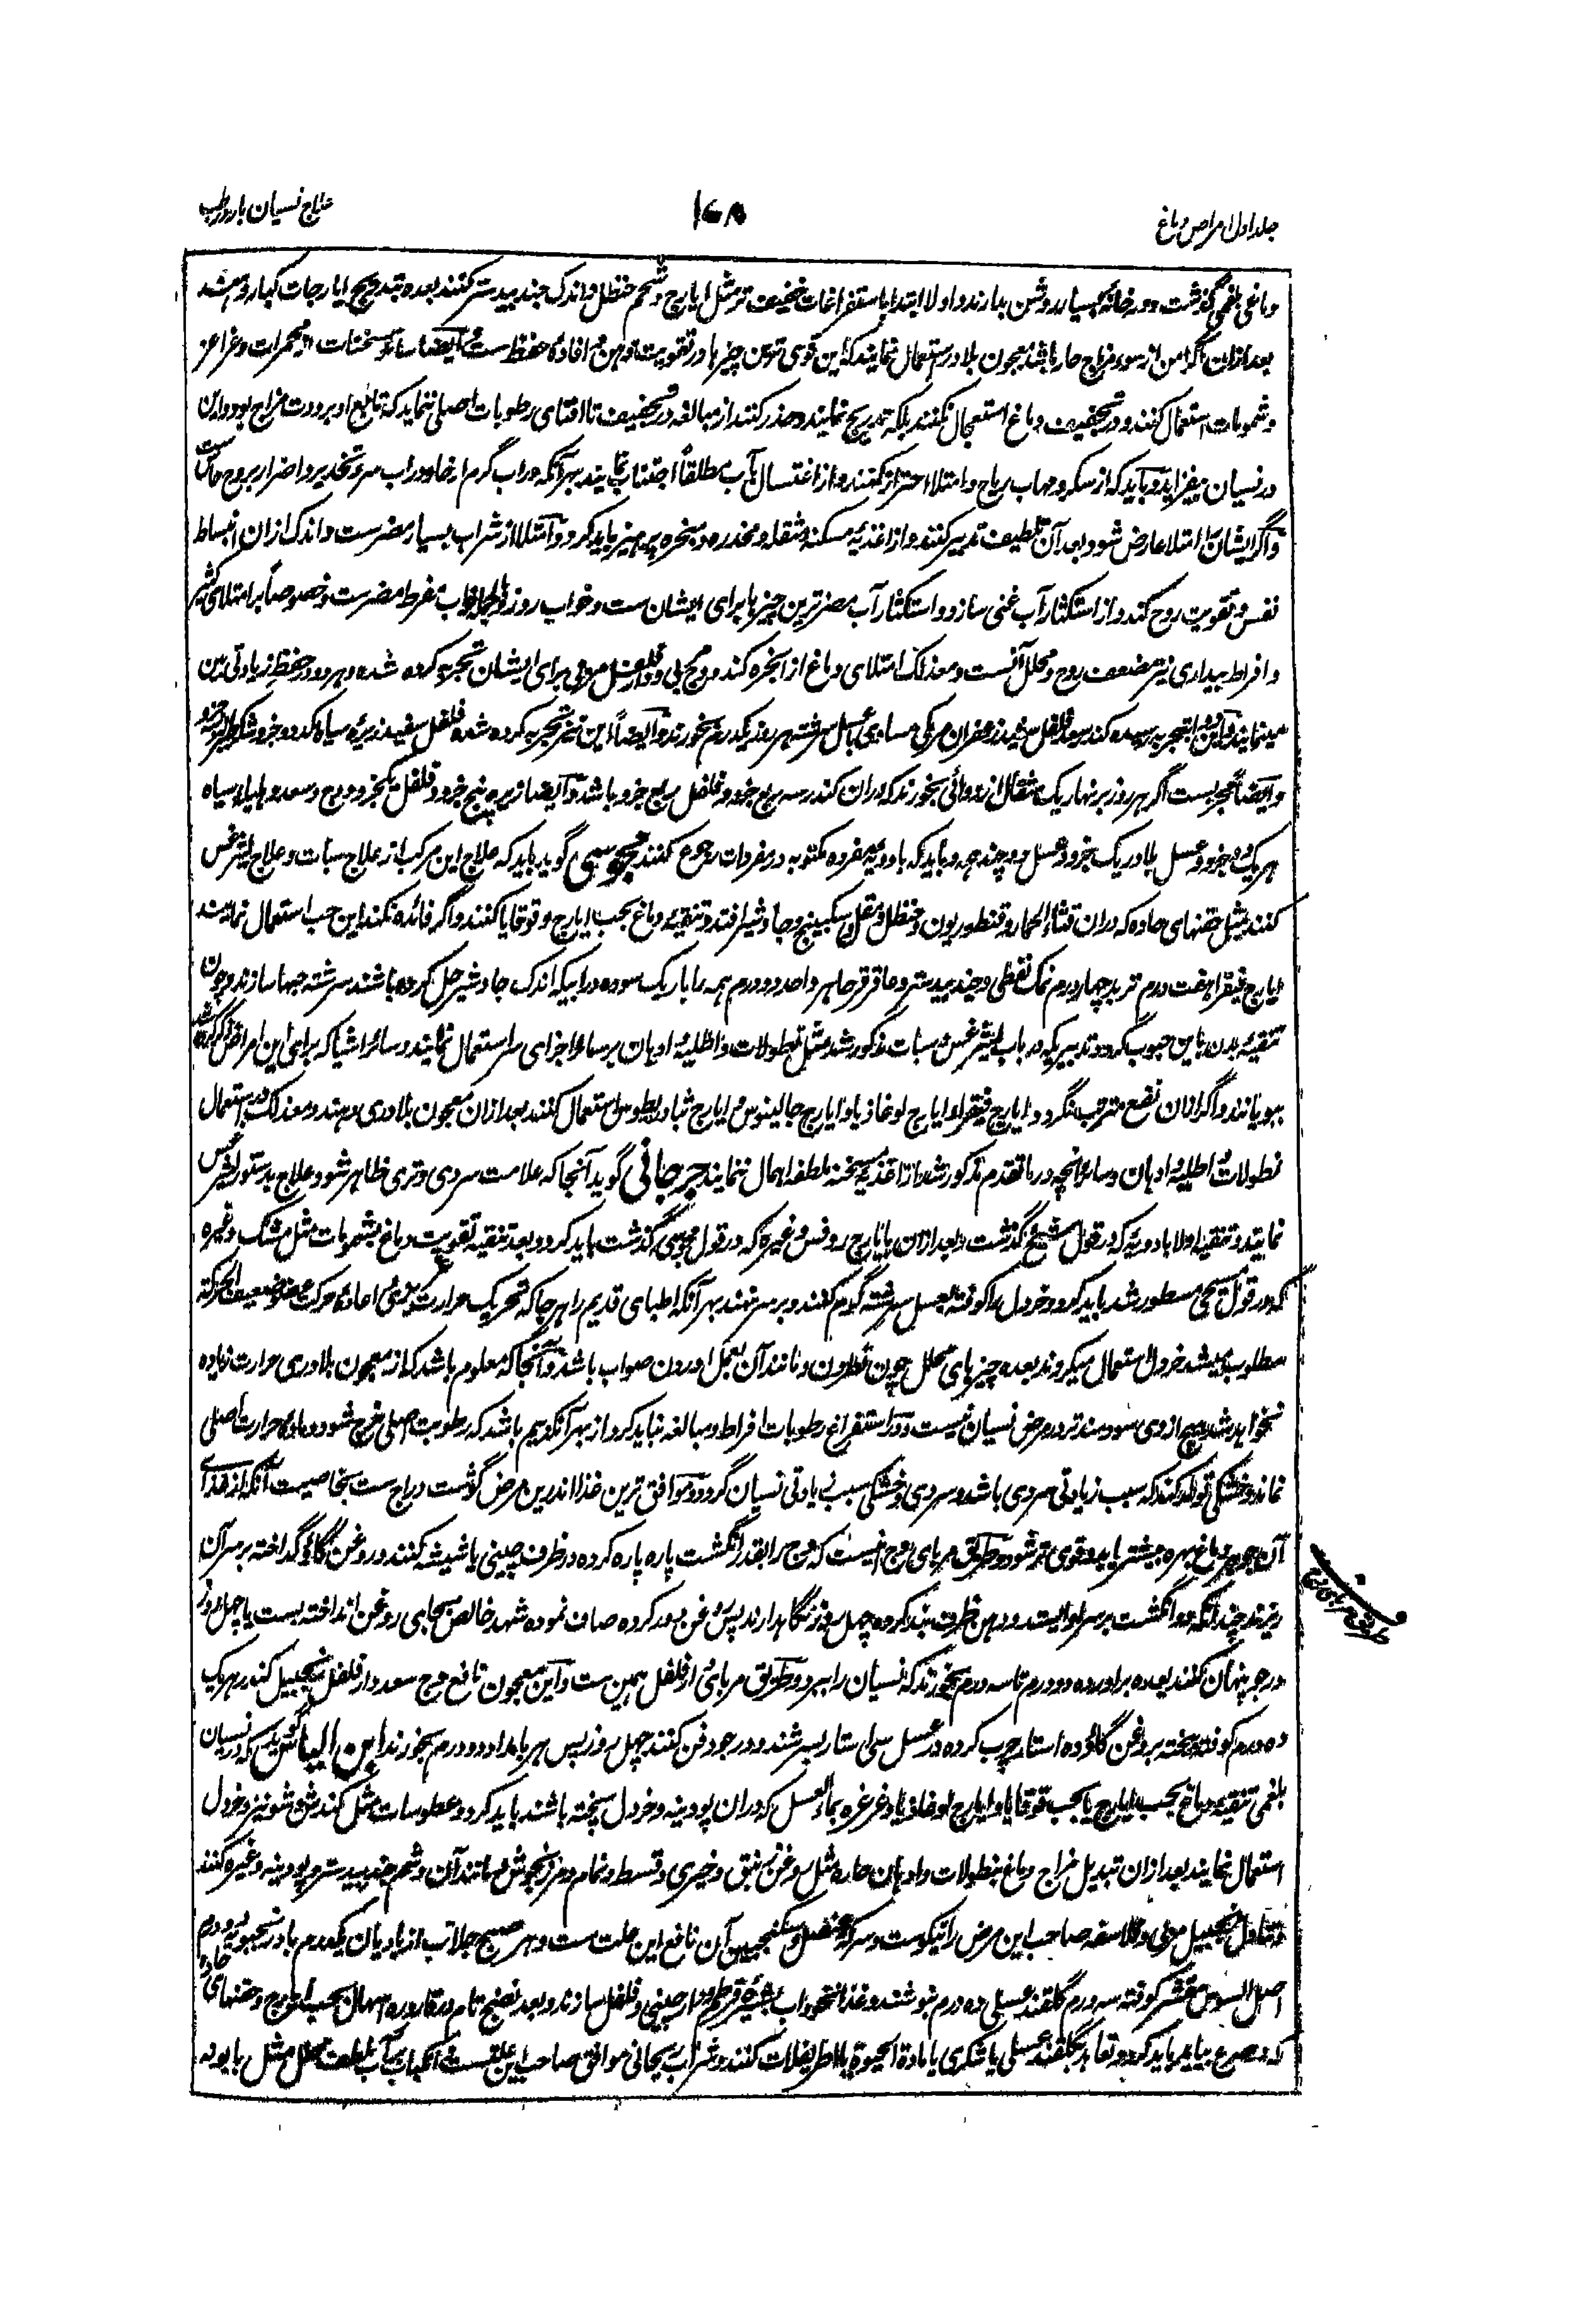 جلد اول امراض دماغ
۱۶۸
علاج نسیان بارد رطب
دماغی بلغمی گذشت و در خانهٔ بسیار روشن بدارند و اولا ابتدا باستفراغات خفیف تر مثل ایارج و شحم حنظل و اندک جندبیدستر کنند بعده بتدریج ایارجات کبار دهند
بعد ازان اگر امن از سوء مزاج حار باشد معجون بلادر استعمال نمایند که این قوی ترین چیزها در تقویت ذهن و افادهٔ حفظ ست و ایضا سائر مسخنات و محمرات و غراغر
و شمومات استعمال کنند و در تجفیف دماغ استعجال نکنند بلکه تدریج نمایند و حذر کنند از مبالغه در تجفیف تا افنای رطوبات اصلی ننماید که تابع او برودت مزاج بود و این
در نسیان بیفزاید و باید که از سکر و مهاب ریاح و امتلا احتراز کنند و از اغتسال بآب مطلقاً اجتناب نمایند بهر آنکه در آب گرم ارخا و در آب سرد تخدیر و اضرار بروح حاس ست
و اگر ایشان را امتلا عارض شود بعد آن تلطیف تدبیر کنند و از اغذیهٔ مسکنه و مثقله و مخدره و مبخره پرهیز باید کرد و امتلا از شراب بسیار مضر ست و اندک ازان انبساط
نفس و تقویت روح کند و از استکثار آب غنی سازد و استکثار آب مضر ترین چیزها برای ایشان ست و خواب روز و بالجمله خواب مفرط مضر ست و خصوصاً بر امتلای کثیر
و افراط بیداری نیز مضعف روح و محلل آنست و معذلک امتلای دماغ از ابخره کند و وج مربی و دارفلفل مربی برای ایشان تجربه کرده شده و هر دو در حفظ زیادتی بین
مینمایند و این دوا بتجربه رسیده کندر سعد فلفل سفید زعفران مرکی مساوی بعسل سرشته هر روز یکدرم بخورند و ایضاً این نیز تجربه کرده شده فلفل سفید زیرهٔ سیاه
و ایضاً مجرب ست اگر هر روز بر نهار یک مثقال از دوائی بخورند که دران کندر سه ربع جزو و فلفل ربع جزو باشد و ایضا زیره پنج جزو و فلفل یکجزو و وج و سعد و هلیله سیاه
هر یک دو جزو و عسل بلادر یک جزو و عسل دو چند همه و باید که بادویهٔ مفرده مکتوبه در مفردات رجوع کنند مجوسی گوید باید که علاج این مرکب از علاج سبات و علاج لیثرغس
کنند مثل حقنهای حاده که دران قثاء الحمار و قنطوریون و حنظل و مقل و سکبینج و جاوشیر افتد و تنقیهٔ دماغ بحب ایارج و قوقایا کنند و اگر فائده نکند این حب استعمال نمایند
ایارج فیقرا هفت درم تربد چهار درم نمک نفطی و جندبیدستر و عاقرقرحا هر واحد دو درم همه را باریک سوده در آبیکه اندک جاوشیر حل کرده باشند سرشته حبها سازند و چون
تنقیهٔ بدن باین حبوب گردد تدبیریکه در باب لیثرغس و سبات مذکور شد مثل نطولات و اطلیه و ادهان بر سائر اجزای سر استعمال نمایند و سائر اشیا که برای این امراض
ببویانند و اگر ازان نفع مترتب نگردد ایارج فیقرا و ایارج لوغاذیا و ایارج جالینوس و ایارج ثیادریطوس استعمال کنند بعد ازان معجون بلادری دهند و معذلک در استعمال
نطولات و اطلیه و ادهان و سائر آنچه در ماتقدم مذکور شد از اغذیهٔ مسخنه ملطفه اهمال ننمایند جرجانی گوید آنجا که علامت سردی و تری ظاهر شود علاج بدستور لیثرغس
نمایند و تنقیه اولا بادویه که در قول شیخ گذشت و بعد ازان بایارج روفس و غیره که در قول مجوسی گذشت باید کرد و بعد تنقیه تقویت دماغ بشمومات مثل مشک و غیره
که در قول مسیحی مسطور شد باید کرد و خردل را کوفته بعسل سرشته گرم کنند و بر سر نهند بهر آنکه اطبای قدیم را هر جا که تحریک حرارت غریزی و اعادهٔ حرکت عضو ضعیف الحرکة
مطلوب میشد خردل استعمال میکردند بعده چیزهای محلل چون نطرون و مانند آن بعمل آوردن صواب باشد و آنجا که معلوم باشد که از معجون بلادری حرارت زیاده
نخواهد شد هیچ ازوی سودمند تر در مرض نسیان نیست و در استفراغ رطوبات افراط و مبالغه نباید کرد از بهر آنکه بیم باشد که رطوبت اصلی خرج شود و مادهٔ حرارت اصلی
نماند و خشکی تولد کند که سبب زیادتی سردی باشد و سردی و خشکی سبب زیادتی نسیان گردد و موافق ترین غذا اندرین مرض گوشت دراج ست بخاصیت آنکه از غذای
آن جوهر دماغ بهره بیشتر یابد و قوی تر شود و طریق مربای وج اینست که وج را بقدر انگشت پاره پاره کرده در ظرف چینی یا شیشه کنند و روغن گاو گداخته بر سر آن
ریزند چندانکه دو انگشت بر سر او ایستد و دهن ظرف بند کرده چهل روز نگاهدارند پس روغن دور کرده صاف نموده شهد خالص بجای روغن انداخته بیست یا چهل روز
در جو پنهان کنند بعده برآورده دو درم تا سه درم بخورند که نسیان را ببرد و طریق مربای دارفلفل همین ست و این معجون نافع وج سعد دارفلفل زنجبیل کندر هر یک
ده درم کوفته بیخته بروغن گاو ده استار چرب کرده در عسل سی استار بسرشند و در جو دفن کنند چهل روز پس هر بامداد دو درم بخورند ابن الیاس گوید که در نسیان
بلغمی تنقیهٔ دماغ بحب ایارج یا بحب قوقایا و ایارج لوغاذیا و غرغره بماء العسل که دران پودینه و خردل پخته باشند باید کرد و عطوسات مثل کندش و شونیز و خردل
استعمال نمایند بعد ازان تبدیل مزاج دماغ بنطولات و ادهان حاره مثل روغن زنبق و خیری و قسط و نمام و مرزنجوش و مانند آن و شم جندبیدستر و پودینه و غیره کنند
و تناول زنجبیل مربی و فلاسفه صاحب این مرض را نیکوست و سرکه عنصل و سکنجبین آن نافع این علت ست و هر صبح جلاب از بادیان یکدرم بادرنجبویه دو درم
اصل السوس مقشر کوفته سه درم گلقند عسلی ده درم بنوشند و غذا نخوداب بشیرهٔ قرطم و دارچینی و فلفل سازند و بعد نضج تام در قاروره اسهال بحب ایارج و حقنهای حاده
که در صرع بیاید باید کرد و تعاهد بگلقند عسلی یا شکری یا بمادة الحیوة یا اطریفلات کنند و شراب ریحانی موافق صاحب این علت ست و انکباب بآب ملطف محلل مثل بابونه
طریق مربای وج